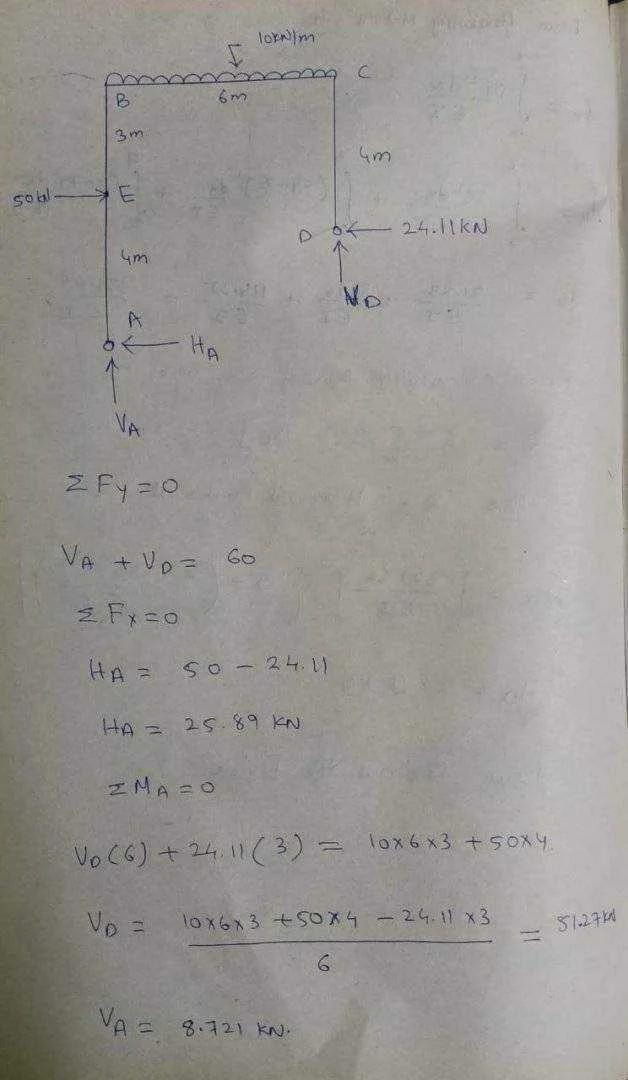 10KN/m
B
C
6m
3m
4m
50kN
E
D
24.11KN
4m
VD
A
HA
VA
Σ Fy = 0
VA + VD = 60
Σ Fx = 0
HA = 50 - 24.11
HA = 25.89 KN
Σ MA = 0
VD(6) + 24.11(3) = 10×6×3 + 50×4
VD = 10×6×3 + 50×4 - 24.11 ×3 = 51.27KN
6
VA = 8.721 KN.